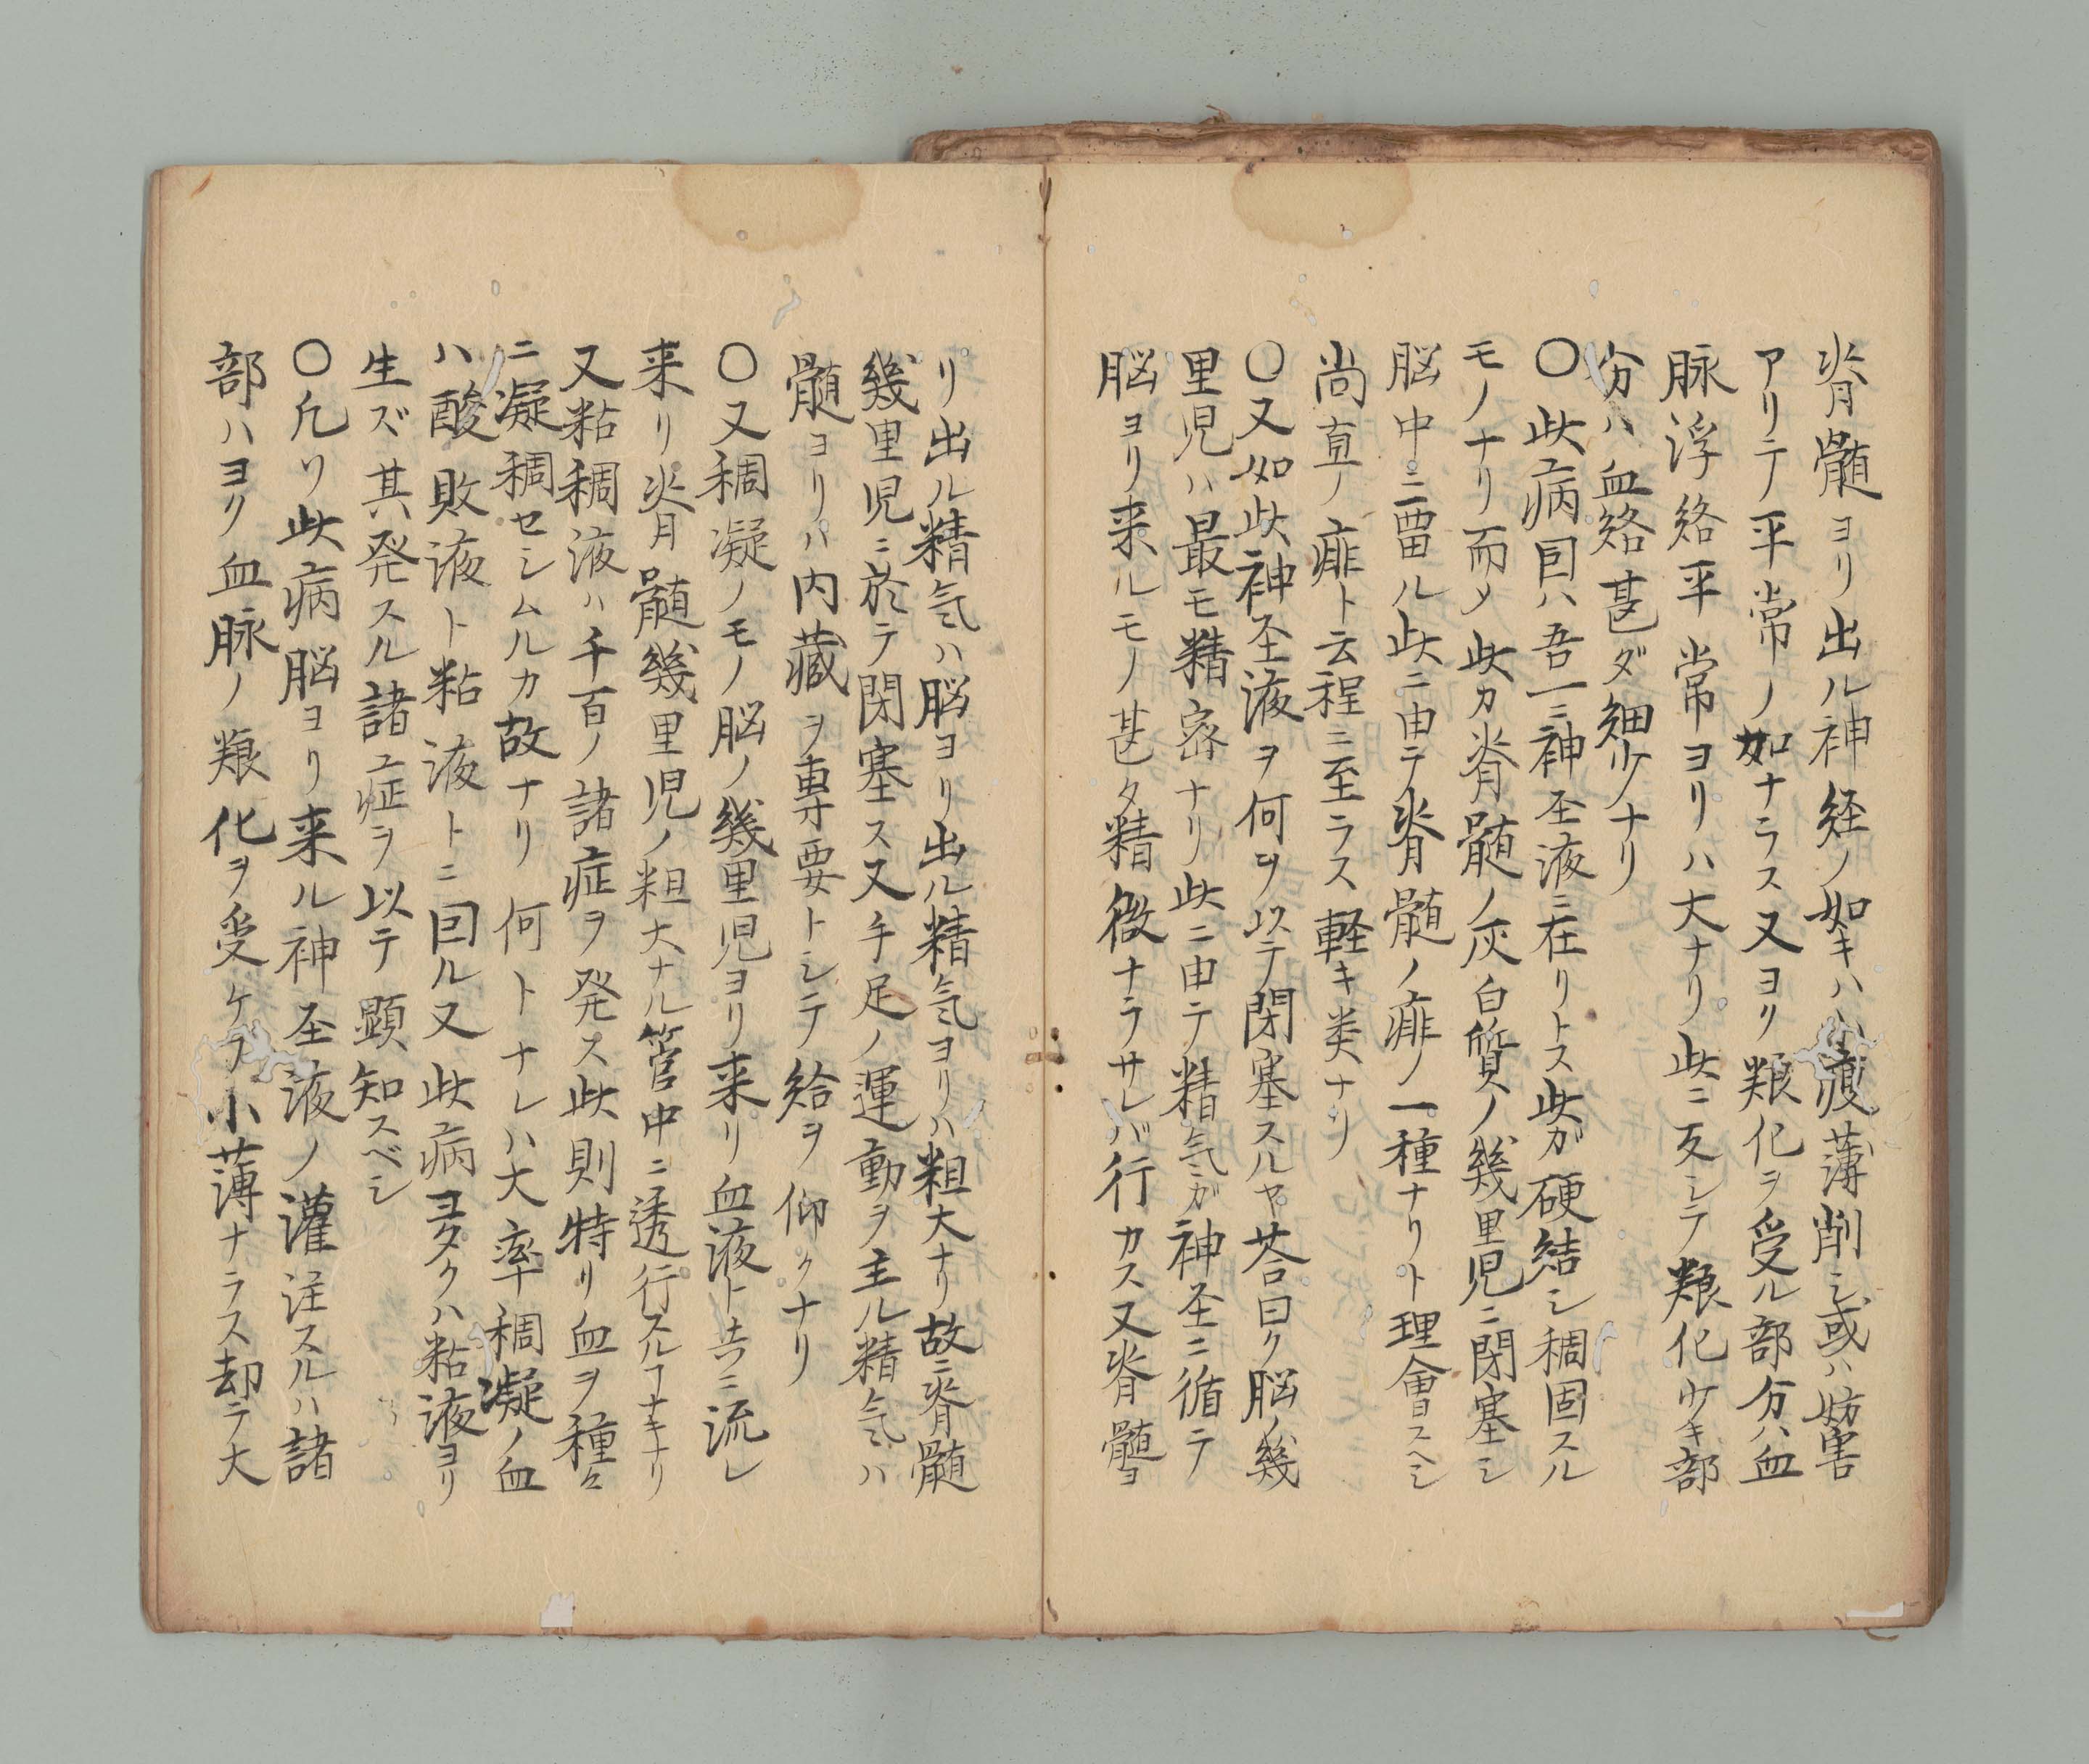 脊髄ヨリ出ル神経ノ如キハ小痩薄削シ或ハ妨害
アリテ平常ノ如ナラス又ヨク粮化ヲ受ル部分ハ血
脉浮絡平常ヨリハ大ナリ此ニ反シテ粮化少キ部
分ハ血絡甚ダ細少ナリ
〇此病因ハ吾一ニ神圣液ニ在リトス此ガ硬結シ稠固スル
モノナリ而メ此カ脊髄ノ灰白質ノ幾里児ニ閉塞シ
脳中ニ畱ル此ニ由テ脊髄ノ痱ノ一種ナリト理會スヘシ
尚直ノ痱ト云程ニ至ラス軽キ类ナリ
〇又如此神圣液ヲ何ヲ以テ閉塞スルヤ荅曰ク脳ノ幾
里児ハ最モ精密ナリ此ニ由テ精気ガ神圣ニ循テ
脳ヨリ来ルモノ甚タ精微ナラサレバ行カス又脊髄ヨ
リ出ル精気ハ脳ヨリ出ル精気ヨリハ粗大ナリ故ニ脊髄
幾里児ニ於テ閉塞ス又手足ノ運動ヲ主ル精気ハ
髄ヨリハ内藏ヲ專要トシテ給ヲ仰クナリ
〇又稠凝ノモノ脳ノ幾里児ヨリ来リ血液ト共ニ流レ
来リ脊髄幾里児ノ粗大ナル管中ニ透行スルヿナキナリ
又粘稠液ハ千百ノ諸症ヲ発ス此則特リ血ヲ種々
ニ凝稠セシムルカ故ナリ何トナレハ大率稠凝ノ血
ハ酸敗液ト粘液トニ因ル又此病ヨクタクハ粘液ヨリ
生ズ其発スル諸症ヲ以テ顕知スベシ
〇凢ソ此病脳ヨリ来ル神圣液ノ灌注スルハ諸
部ハヨク血脉ノ粮化ヲ受ケテ小薄ナラス却テ大